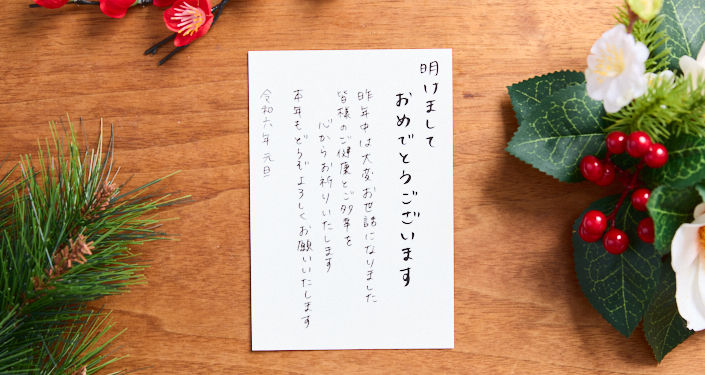 明けまして
おめでとうございます
昨年中は大変お世話になりました
皆様のご健康とご多幸を
心からお祈りいたします
本年もどうぞよろしくお願いいたします
令和六年 元旦